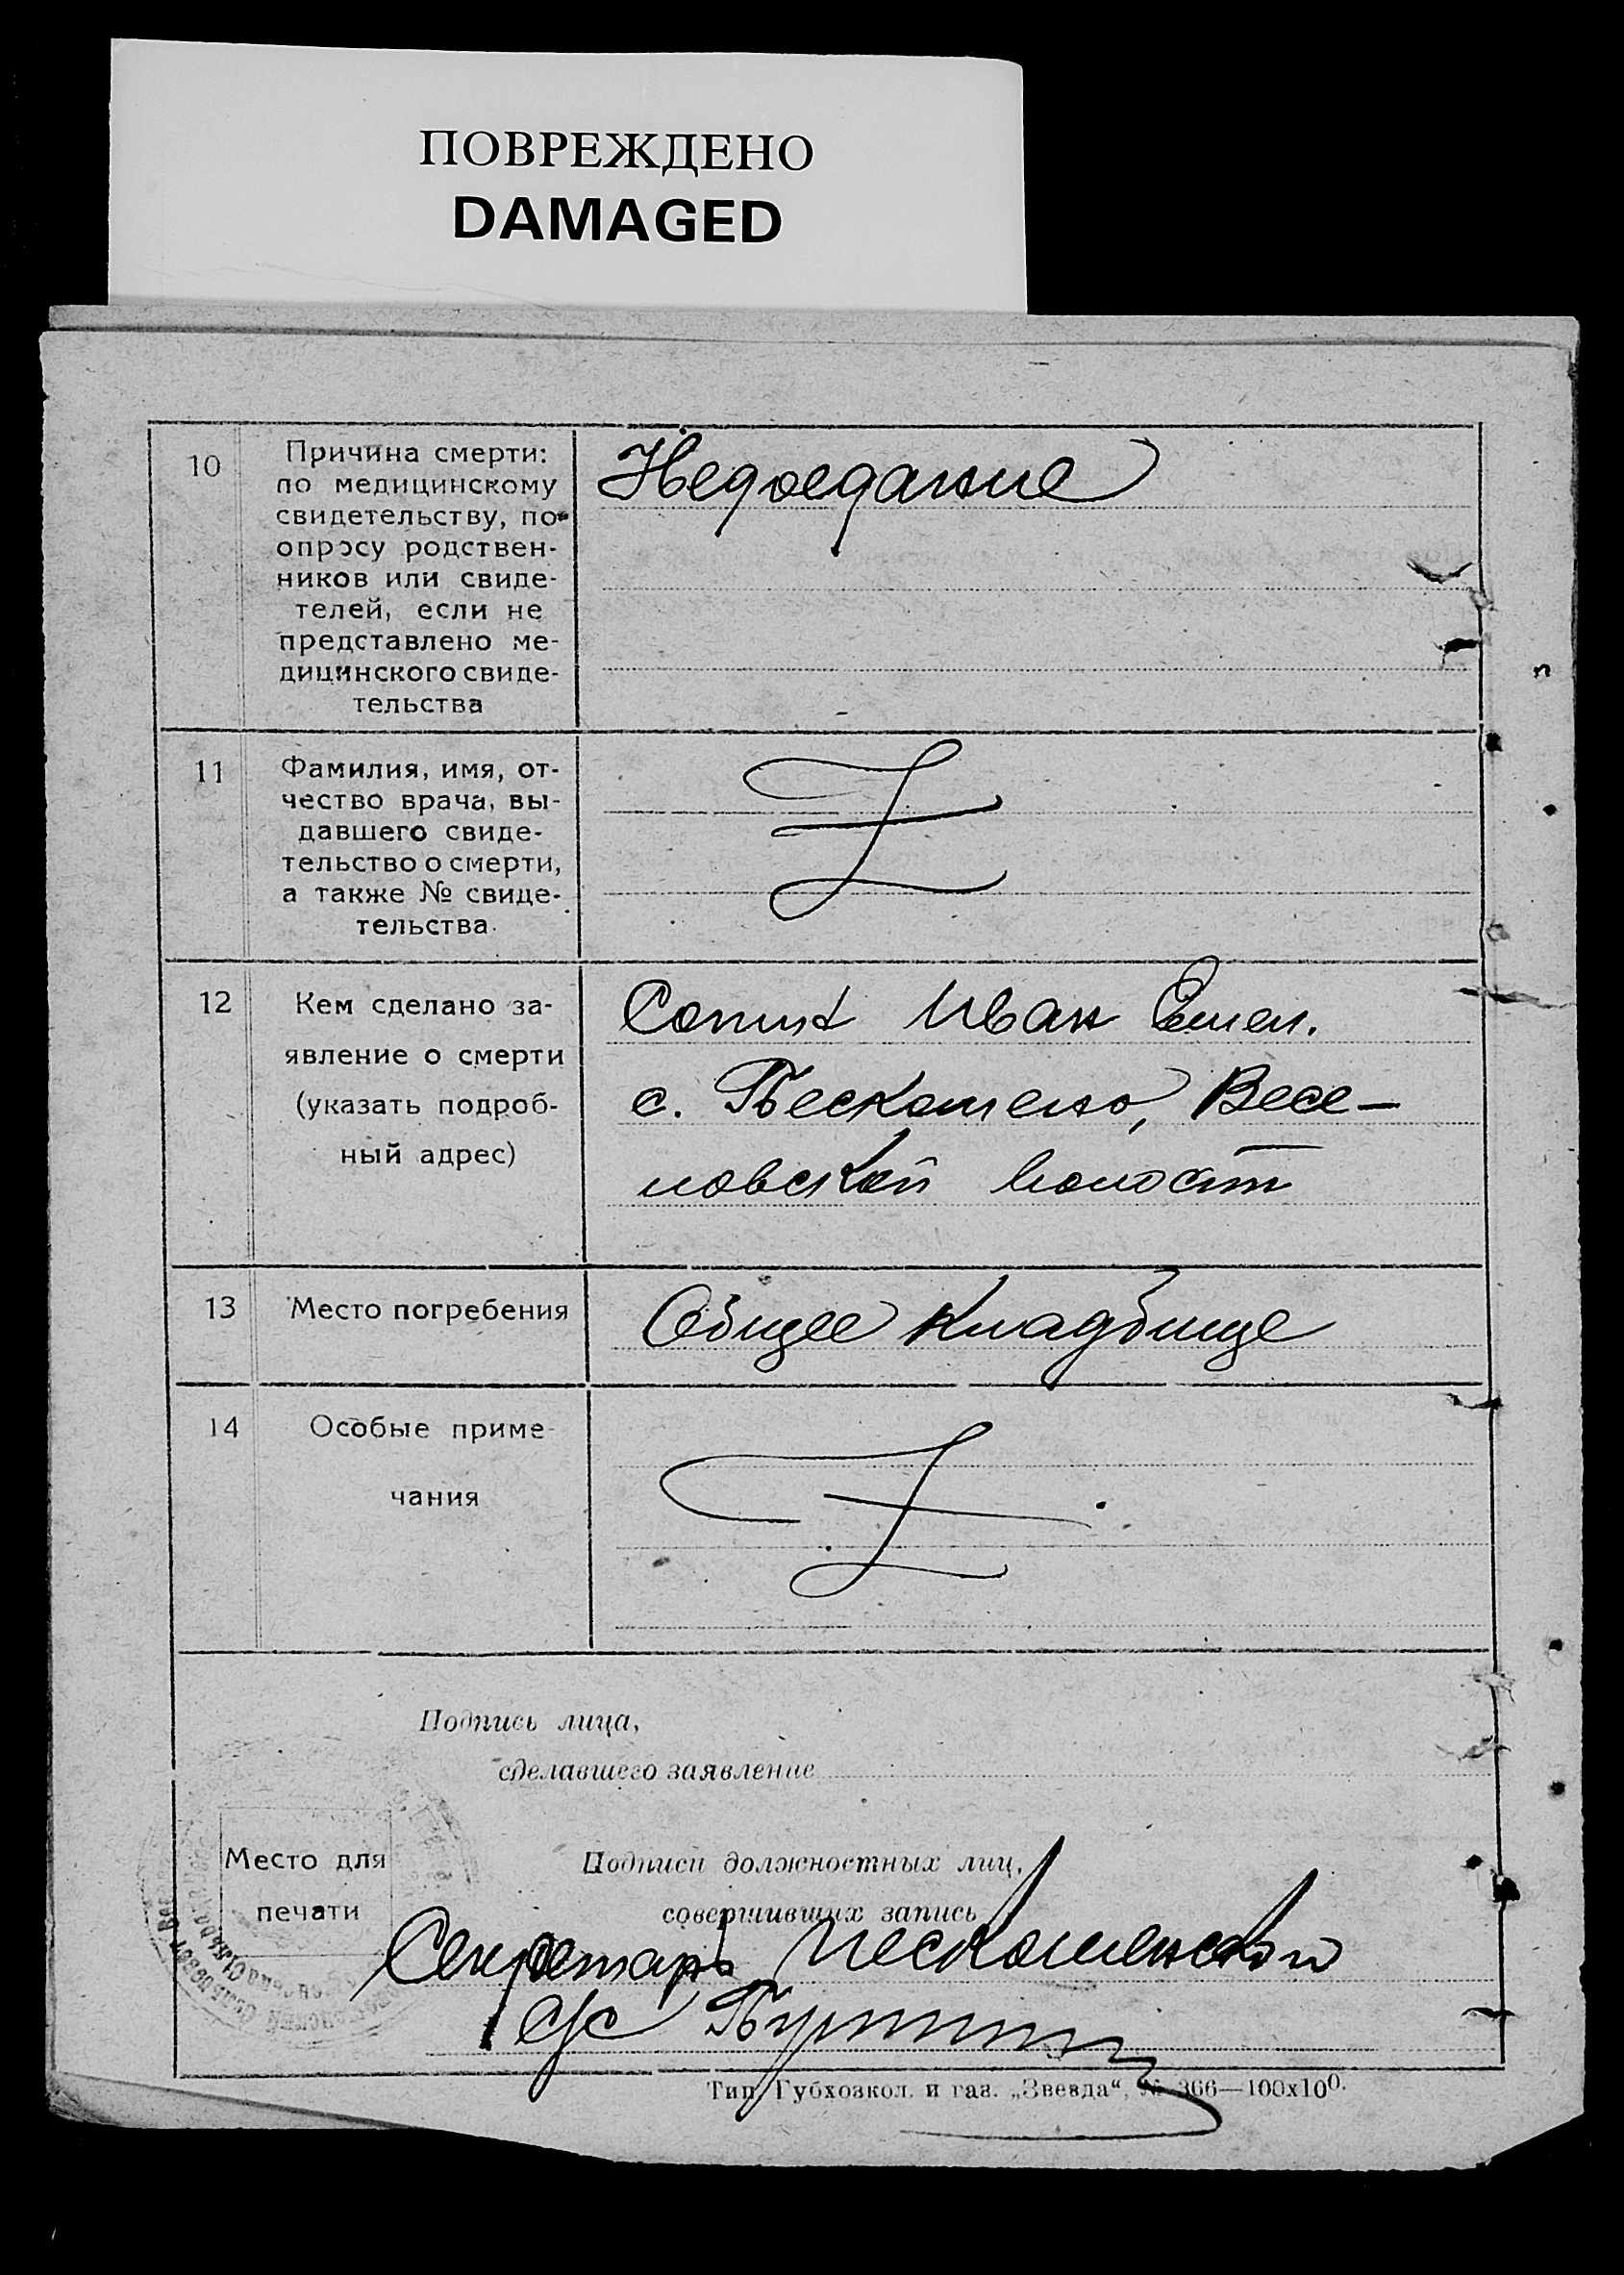 ПОВРЕЖДЕНО
DAMAGED
10
Причина смерти:
по медицинскому
свидетельству, по
опросу родствен-
ников или свиде-
телей, если не
представлено ме-
дицинского свиде-
тельства
Недоедание
11
Фамилия, имя, от-
чество врача, вы-
давшего свиде-
тельство о смерти,
а также № свиде-
тельства.
12
Кем сделано за-
явление о смерти
(указать подроб-
ный адрес)
Иван Емел.
с. Весе-
ловской волости
13
Место погребения
Общее кладбище
14
Особые приме-
чания
Подпись лица,
сделавшего заявление
Место для
печати
Подписи должностных лиц,
совершивших запись
Секретарь
с/с
Тип. Губхозкол. и газ. „Звезда“, № 366—100х100.